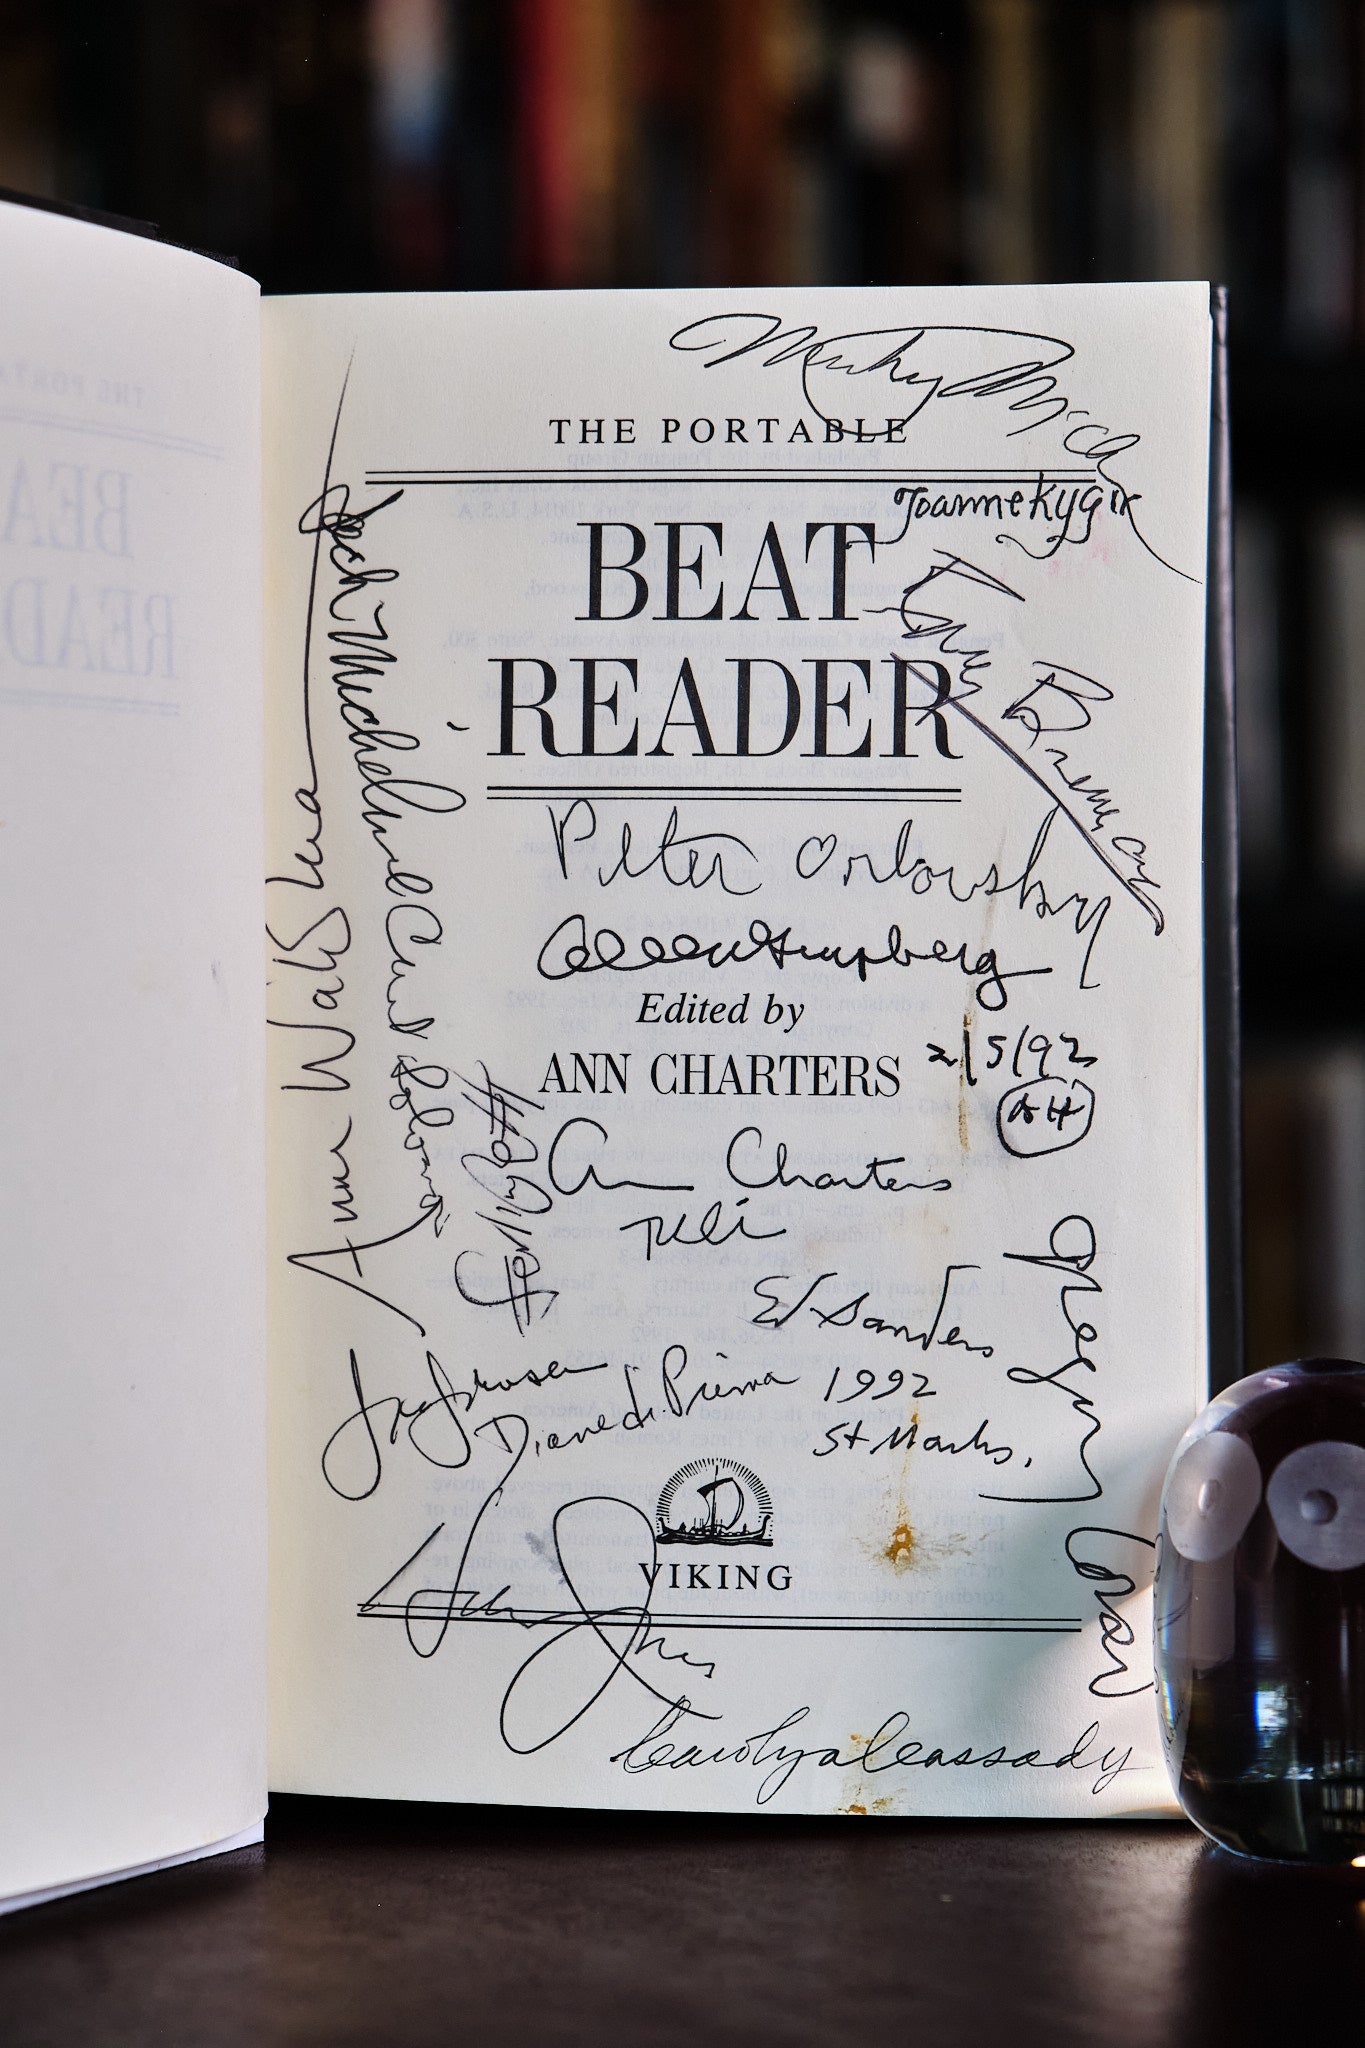 THE PORTABLE
BEAT
READER
Joanne Kyger
Ray Bremser
Peter Orlovsky
Allen Ginsberg
Edited by
ANN CHARTERS
2/5/92
AH
Ann Charters
Tuli
Ed Sanders
1992
St Marks.
Diane di Prima
Anne Waldman
Jack Micheline
Carl Solomon
Gregory
Corso
VIKING
Jones
Carolyn Cassady